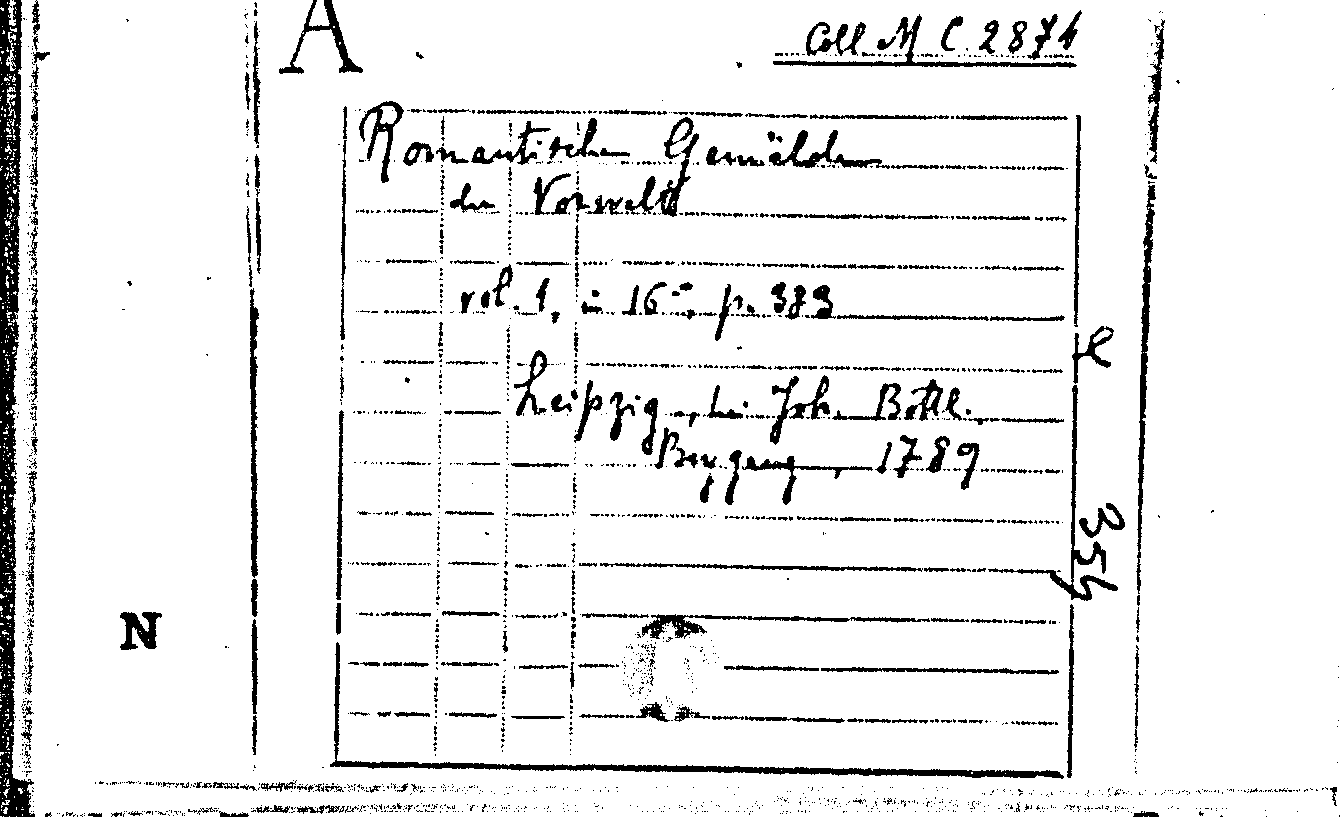 A
Coll. M C 2874
Romantische Gemälde
der Vorwelt
vol. 1, in 16-, p. 383
Leipzig, bei Joh. Gottl.
Beygang, 1789
354
N